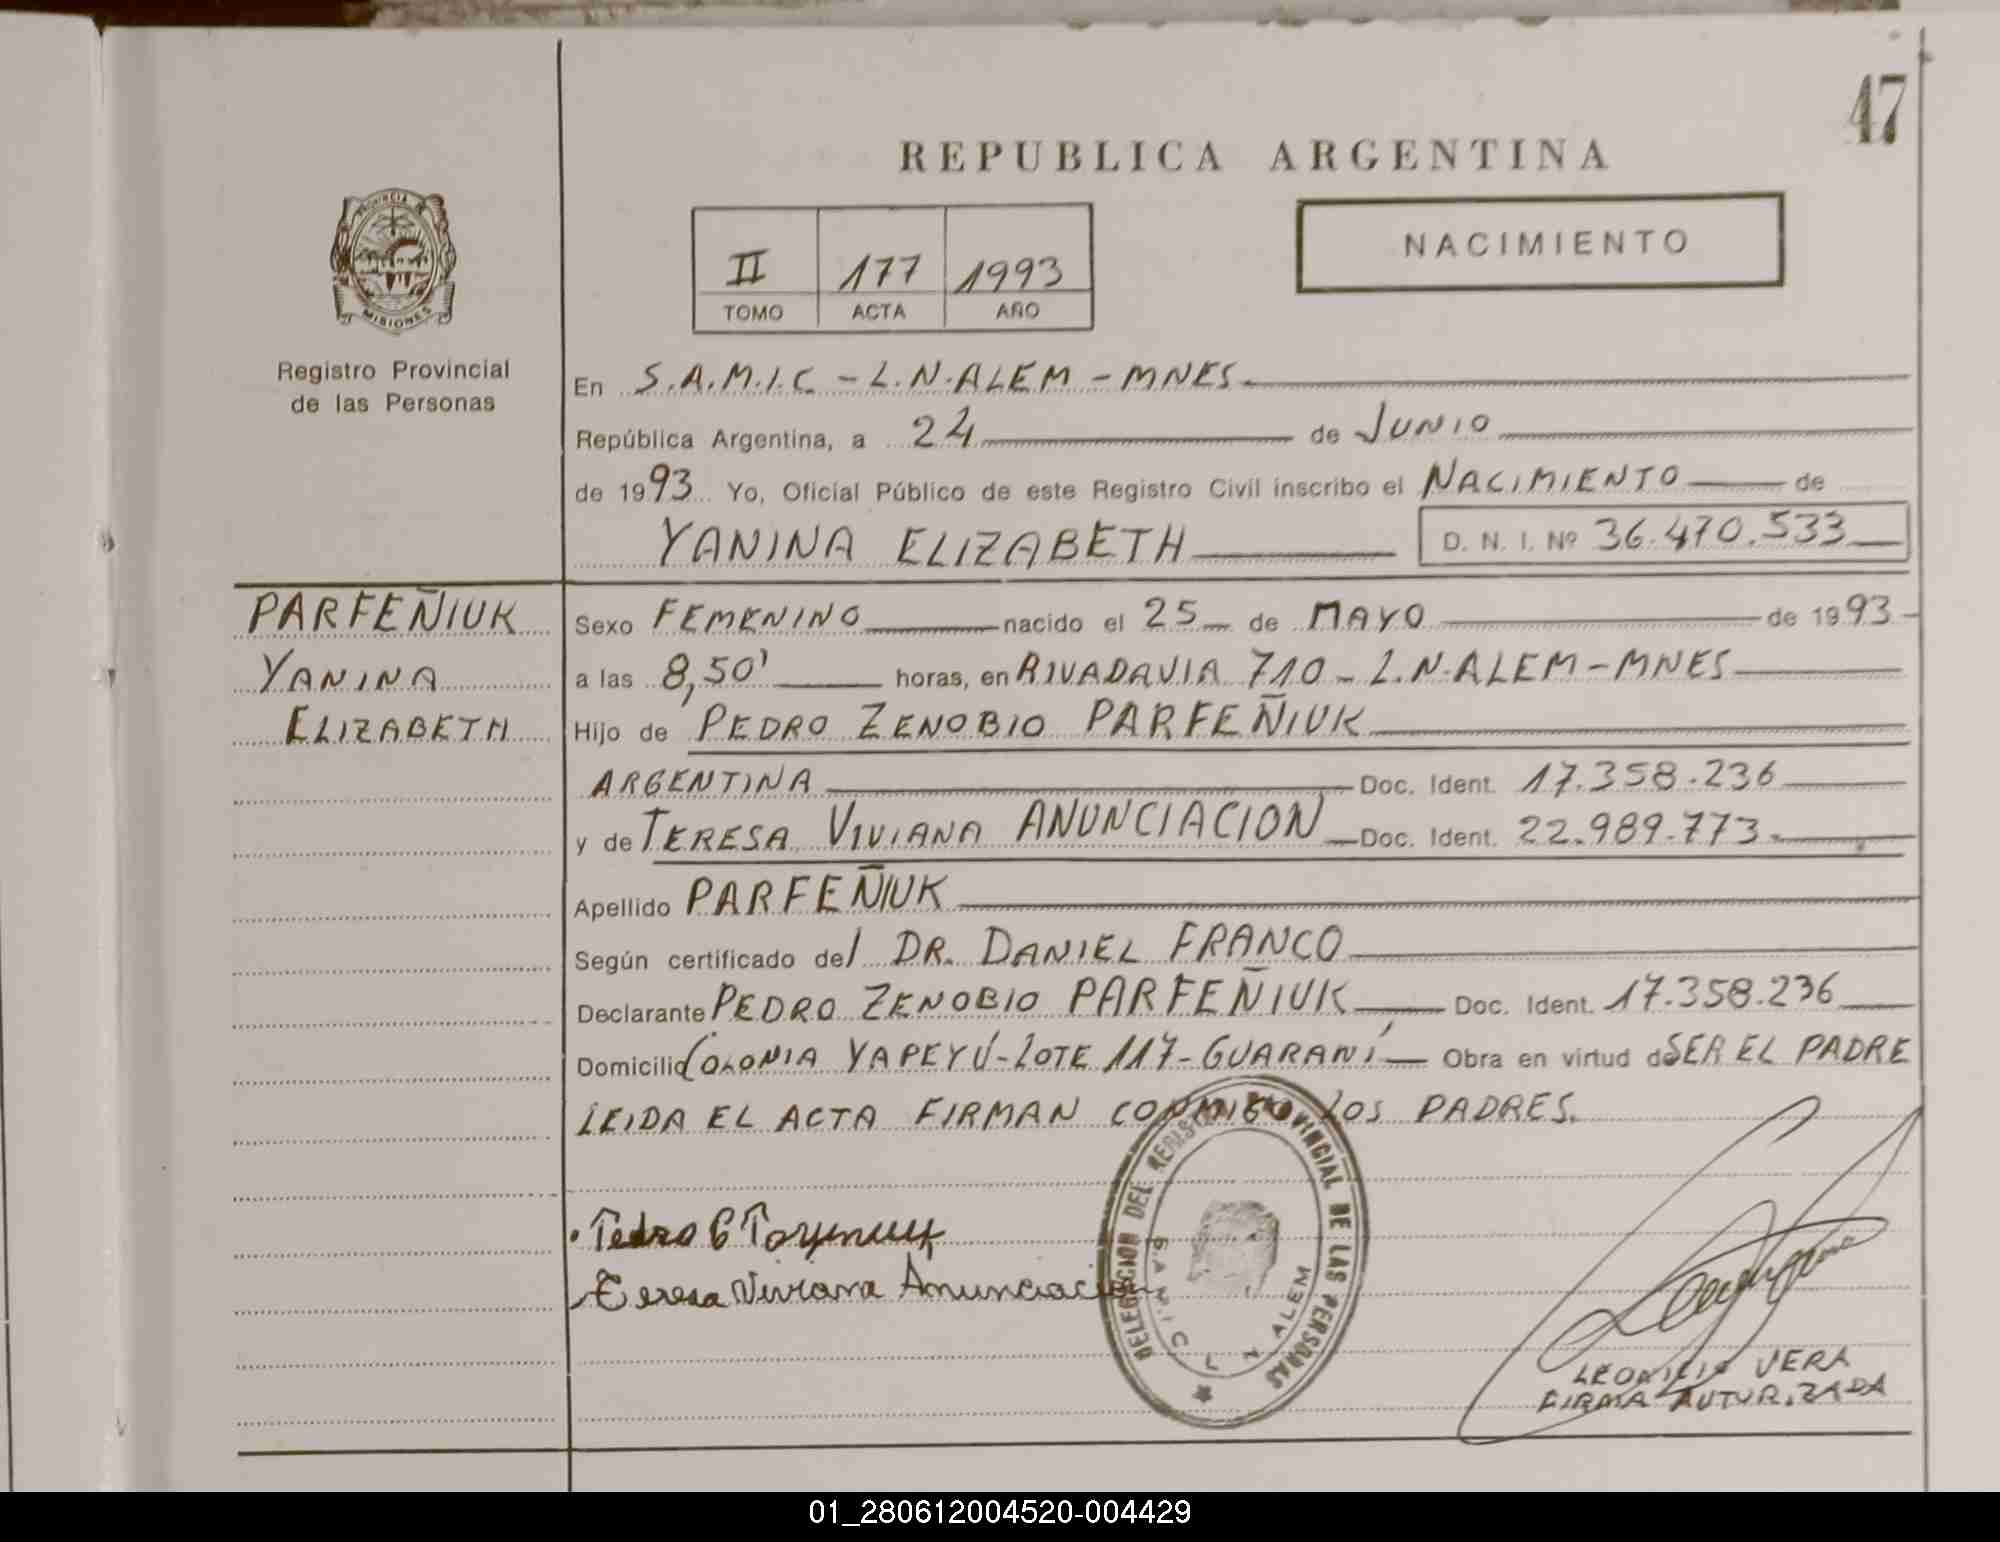 47
REPUBLICA ARGENTINA
NACIMIENTO
II 177 1993
TOMO ACTA AÑO
PROVINCIA DE
MISIONES
Registro Provincial
de las Personas
En S.A.M.I.C - L.N.ALEM - MNES.
República Argentina, a 24 de JUNIO
de 1993 Yo, Oficial Público de este Registro Civil inscribo el NACIMIENTO de
YANINA ELIZABETH D. N. I. Nº 36.470.533
PARFEÑIUK
YANINA
ELIZABETH
Sexo FEMENINO nacido el 25 de MAYO de 1993
a las 8,50' horas, en RIVADAVIA 710 - L.N.ALEM - MNES
Hijo de PEDRO ZENOBIO PARFEÑIUK
ARGENTINA Doc. Ident. 17.358.236
y de TERESA VIVIANA ANUNCIACION Doc. Ident. 22.989.773.
Apellido PARFEÑIUK
Según certificado del DR. DANIEL FRANCO
Declarante PEDRO ZENOBIO PARFEÑIUK Doc. Ident. 17.358.236
Domicilio COLONIA YAPEYÚ - LOTE 117 - GUARANÍ Obra en virtud de SER EL PADRE
LEIDA EL ACTA FIRMAN CONMIGO LOS PADRES.
Teresa Viviana Anunciacion
DELEGACION DEL REGISTRO PROVINCIAL DE LAS PERSONAS
S.A.M.I.C L N ALEM
VERA
FIRMA AUTORIZADA
01_280612004520-004429